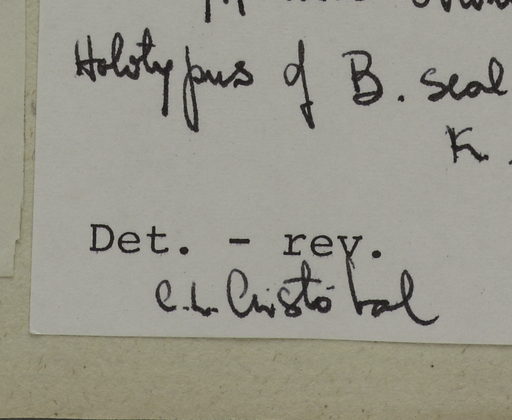 Holotypus of B. scal
K.
Det. - rev.
C.L. Cristóbal